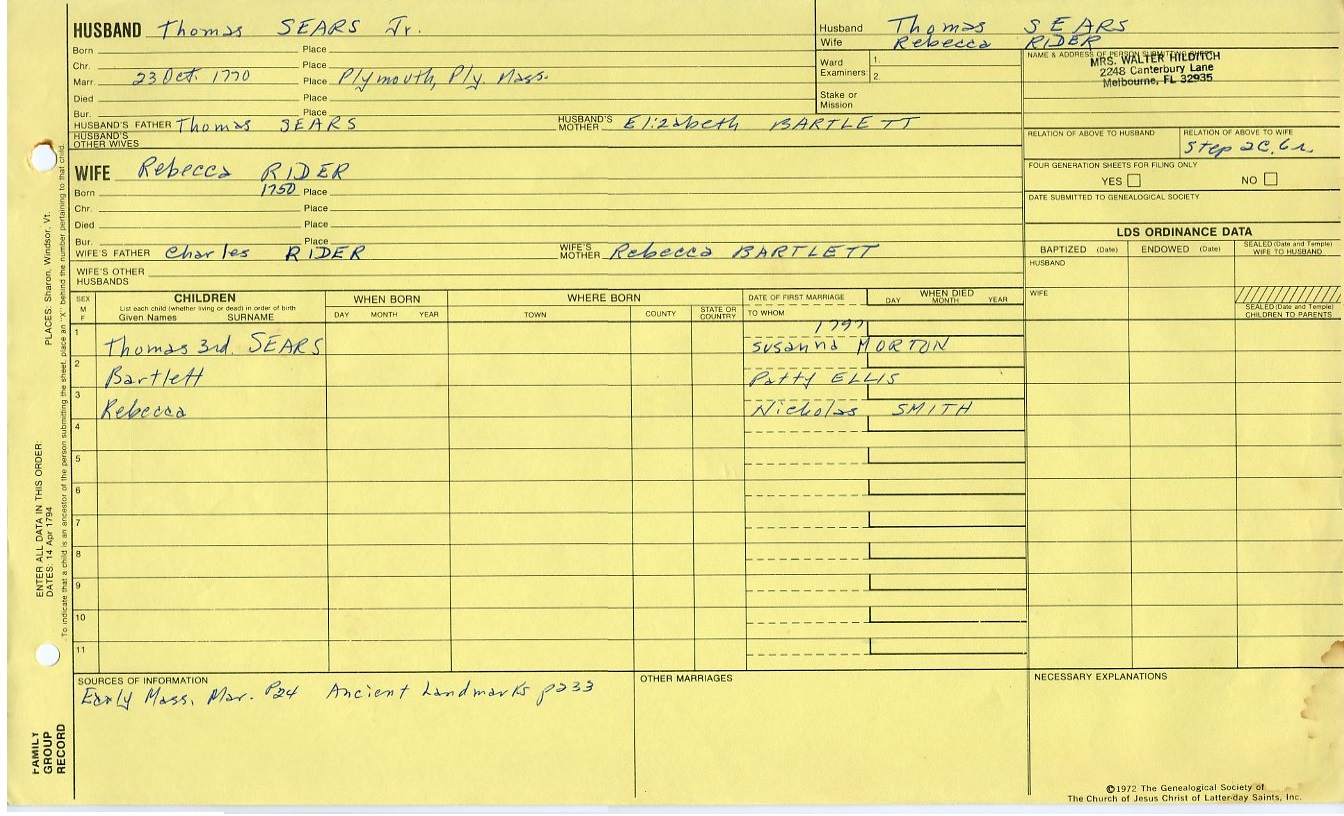 HUSBAND Thomas SEARS Jr.
Born Place
Chr. Place
Marr. 23 Oct. 1770 Place Plymouth, Ply. Mass.
Died Place
Bur. Place
HUSBAND'S FATHER Thomas SEARS HUSBAND'S MOTHER Elizabeth BARTLETT
HUSBAND'S OTHER WIVES
Husband Thomas SEARS
Wife Rebecca RIDER
Ward Examiners 1. 2.
Stake or Mission
NAME & ADDRESS OF PERSON SUBMITTING SHEET
MRS. WALTER HILDITCH
2248 Canterbury Lane
Melbourne, FL 32935
RELATION OF ABOVE TO HUSBAND RELATION OF ABOVE TO WIFE
Step 2C. 6r.
FOUR GENERATION SHEETS FOR FILING ONLY
YES NO
DATE SUBMITTED TO GENEALOGICAL SOCIETY
WIFE Rebecca RIDER
Born 1750 Place
Chr. Place
Died Place
Bur. Place
WIFE'S FATHER Charles RIDER WIFE'S MOTHER Rebecca BARTLETT
WIFE'S OTHER HUSBANDS
LDS ORDINANCE DATA
BAPTIZED (Date) ENDOWED (Date) SEALED (Date and Temple) WIFE TO HUSBAND
HUSBAND
WIFE
SEALED (Date and Temple) CHILDREN TO PARENTS
SEX M F
CHILDREN
List each child (whether living or dead) in order of birth
Given Names SURNAME
WHEN BORN
DAY MONTH YEAR
WHERE BORN
TOWN COUNTY STATE OR COUNTRY
DATE OF FIRST MARRIAGE
TO WHOM
WHEN DIED
DAY MONTH YEAR
1 Thomas 3rd. SEARS 1797 Susanna MORTON
2 Bartlett Patty ELLIS
3 Rebecca Nickolas SMITH
4
5
6
7
8
9
10
11
SOURCES OF INFORMATION
Early Mass. Mar. P24 Ancient Landmarks p233
OTHER MARRIAGES
NECESSARY EXPLANATIONS
©1972 The Genealogical Society of
The Church of Jesus Christ of Latter-day Saints, Inc.
FAMILY GROUP RECORD
ENTER ALL DATA IN THIS ORDER:
DATES: 14 Apr 1794
PLACES: Sharon, Windsor, Vt.
To indicate that a child is an ancestor of the person submitting the sheet, place an "X" behind the number pertaining to that child.